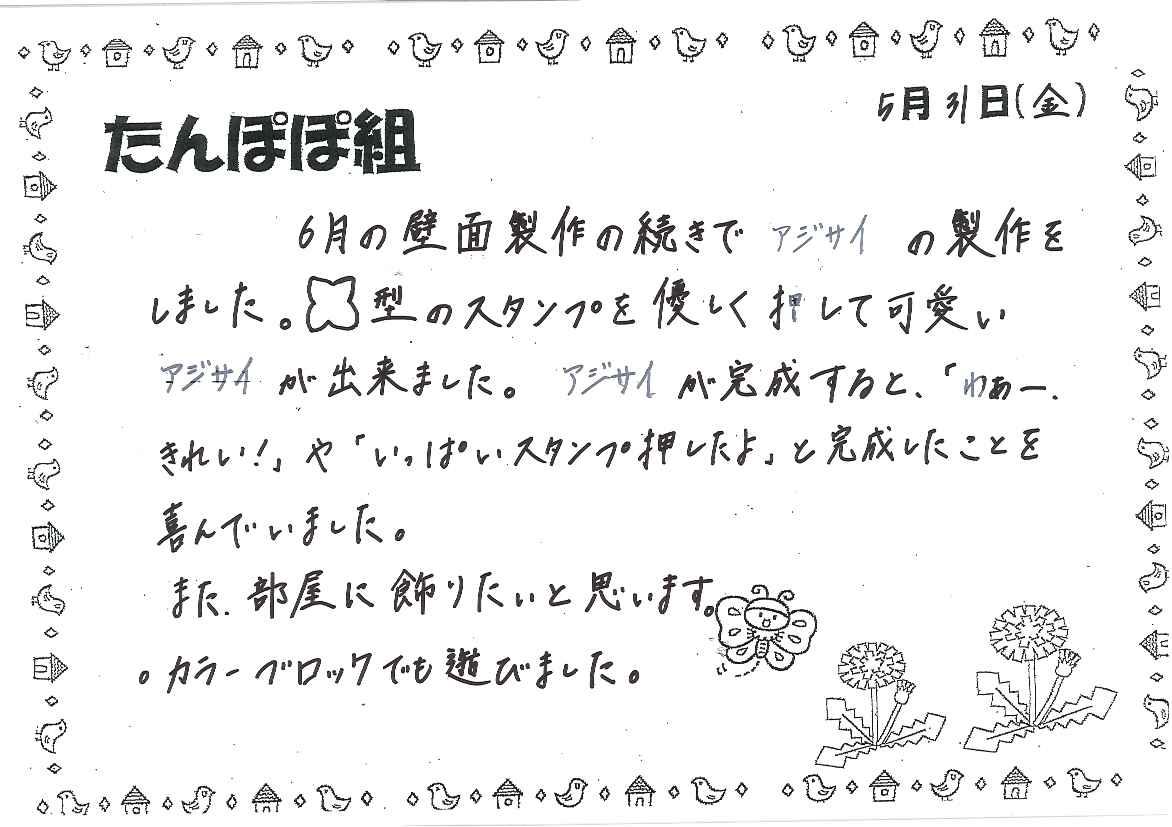 5月31日(金)
たんぽぽ組
6月の壁面製作の続きで アジサイ の製作を
しました。型のスタンプを優しく押して可愛い
アジサイが出来ました。アジサイが完成すると、「わぁー、
きれい!」や「いっぱいスタンプ押したよ」と完成したことを
喜んでいました。
また、部屋に飾りたいと思います。
。カラーブロックでも遊びました。